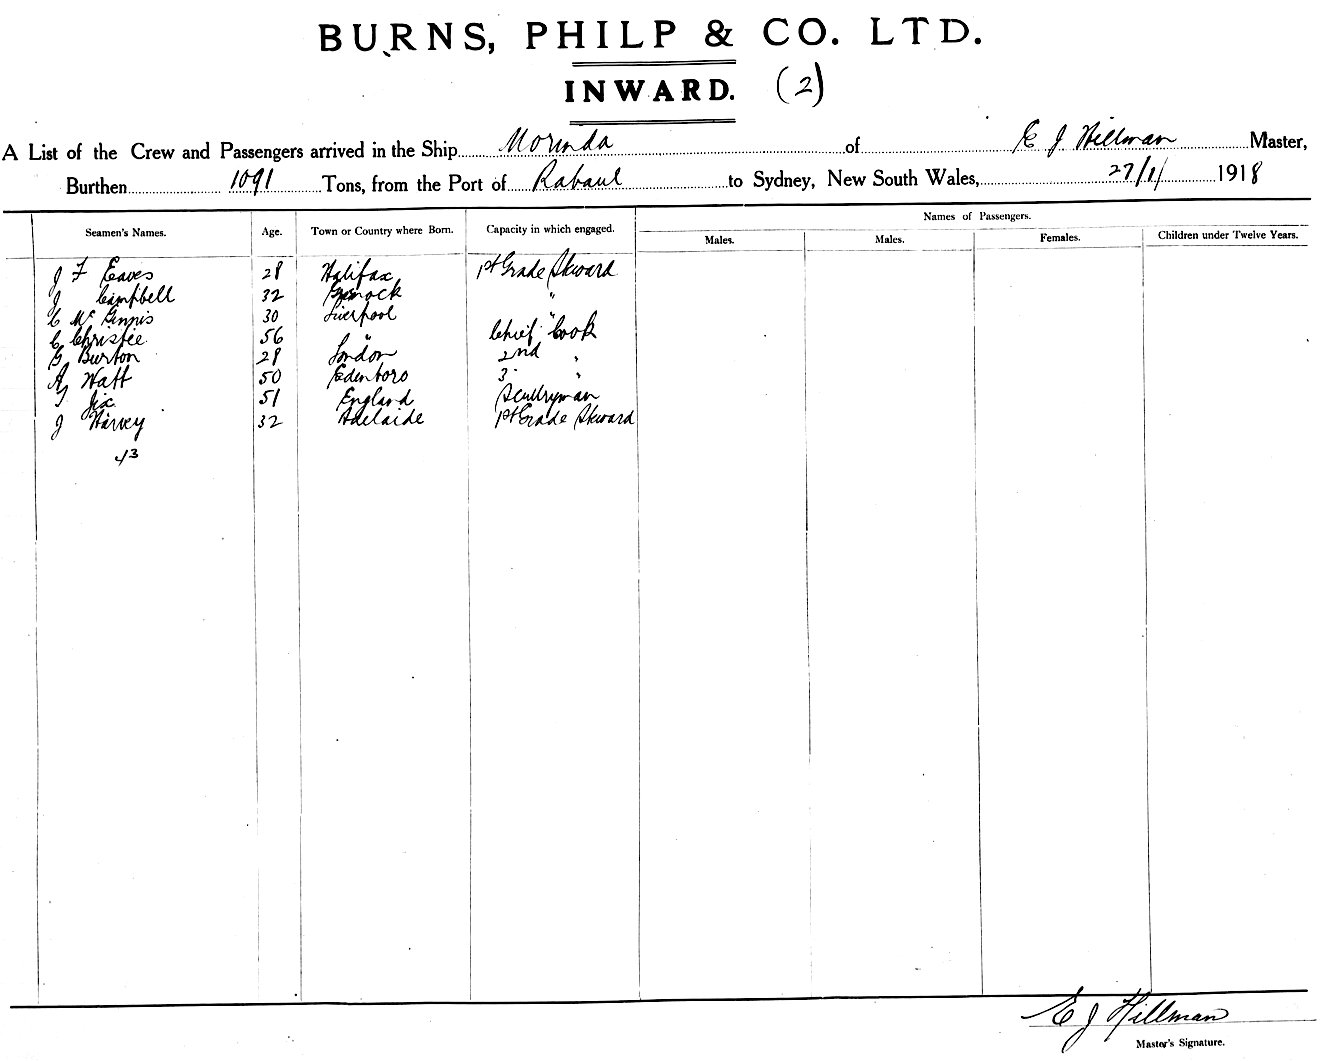 BURNS, PHILP & CO. LTD.
INWARD. (2)
A List of the Crew and Passengers arrived in the Ship Morinda of E J Hillman Master,
Burthen 1091 Tons, from the Port of Rabaul to Sydney, New South Wales, 27/1/ 1918
Names of Passengers.
Seamen's Names. Age. Town or Country where Born. Capacity in which engaged. Males. Males. Females. Children under Twelve Years.
J F Eaves 28 Halifax 1st Grade Steward
J Campbell 32 Greenock "
C McGinnis 30 Liverpool "
C Christie 56 " Chief Cook
G Burton 28 London 2nd "
A Watt 50 Edenboro 3 "
T Jix 51 England Scullryman
J Harvey 32 Adelaide 1st Grade Steward
43
E J Hillman
Master's Signature.